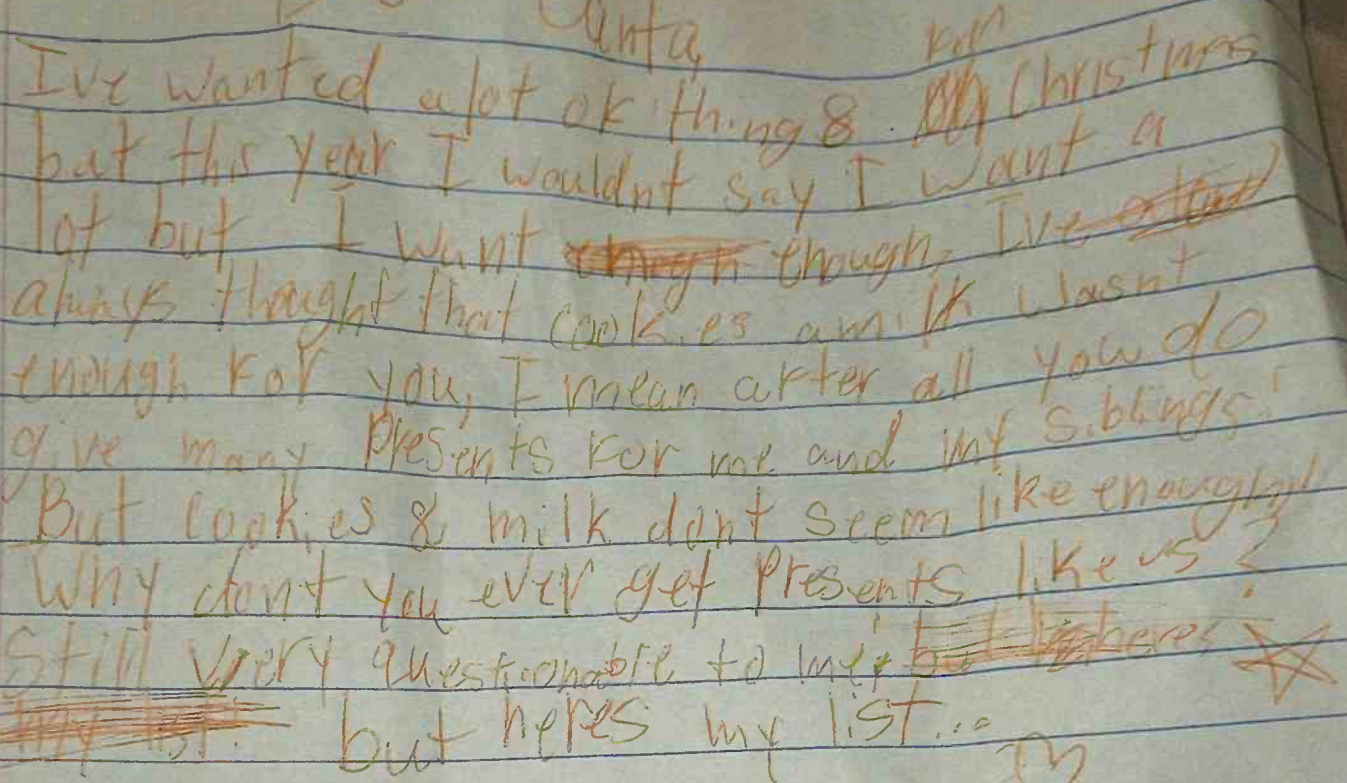 Santa,
Ive wanted alot ok thing8. kor Christmas
but this year I wouldnt say I want a
lot but I want though. Ive
always thought that cookies a milk wasnt
enough kor you, I mean akter all you do
give many presents kor me and my siblings!
But cookies & milk dont seem like enough!
Why dont you ever get presents like us?
Still very questionable to me!
but heres my list...